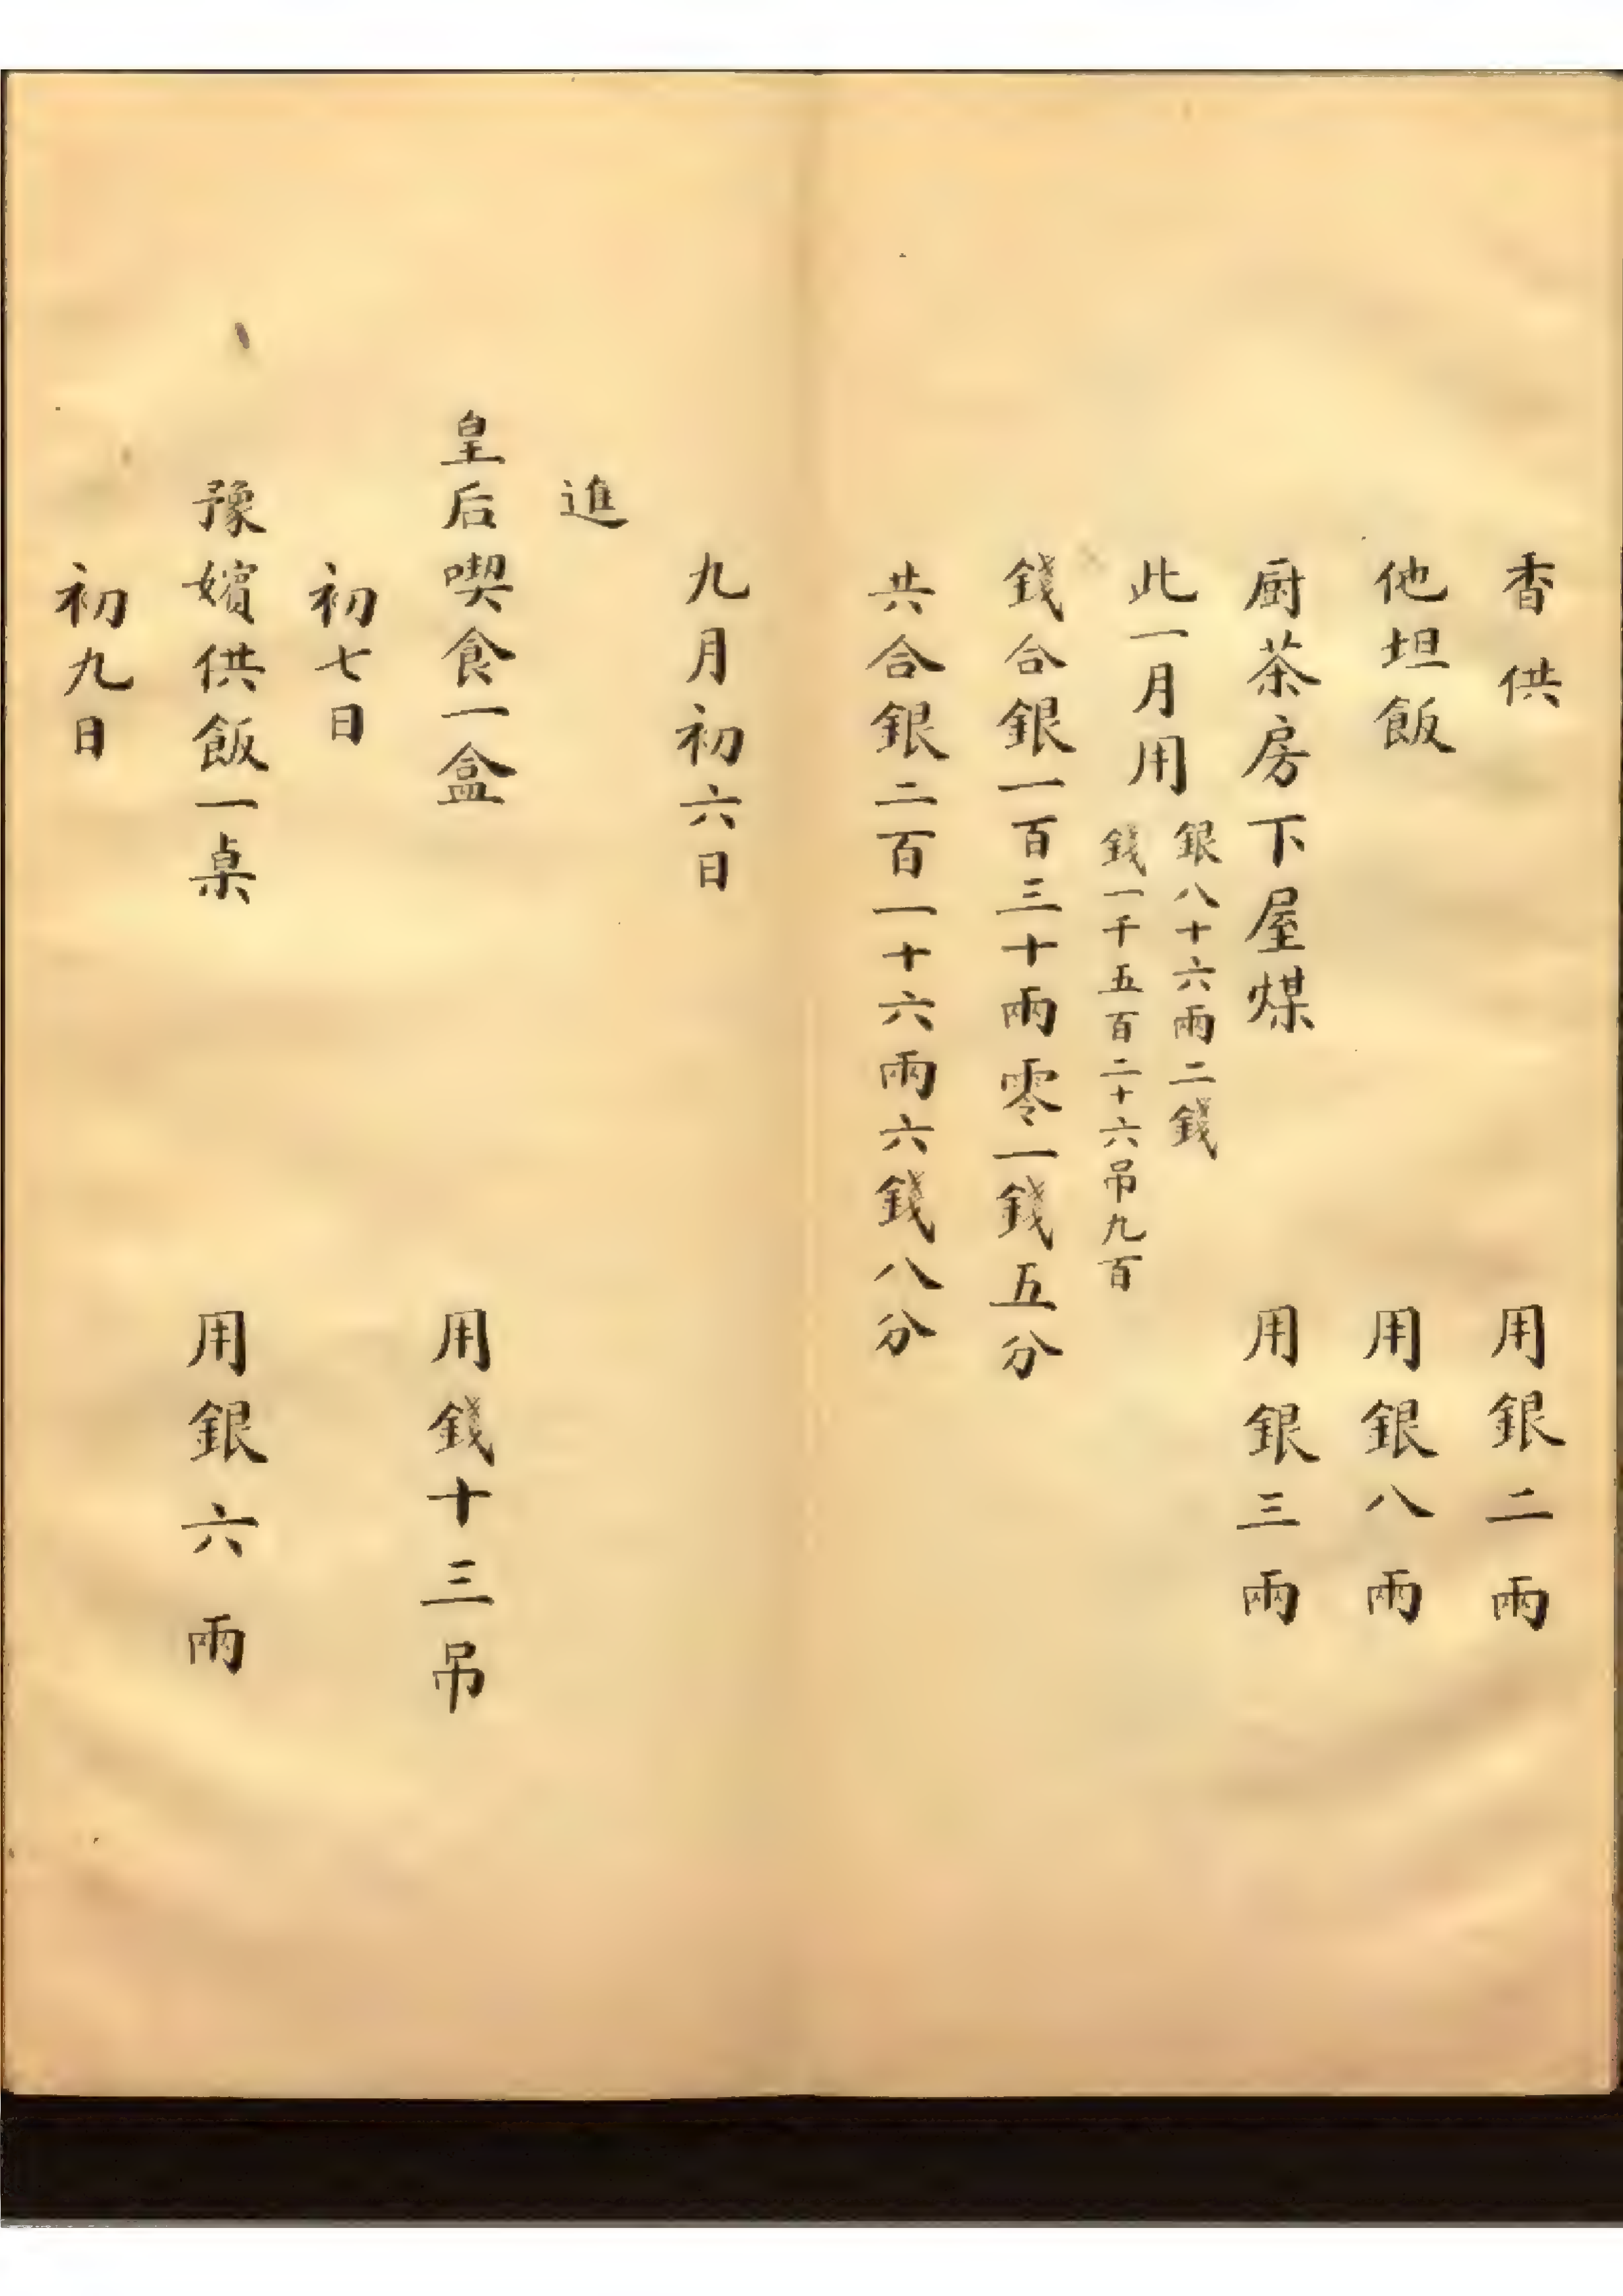 香供 用銀二兩
他坦飯 用銀八兩
厨茶房下屋煤 用銀三兩
此一月用
銀八十六兩二錢
錢一千五百二十六吊九百
錢合銀一百三十兩零一錢五分
共合銀二百一十六兩六錢八分
九月初六日
進
皇后喫食一盒 用錢十三吊
初七日
豫嬪供飯一桌 用銀六兩
初九日